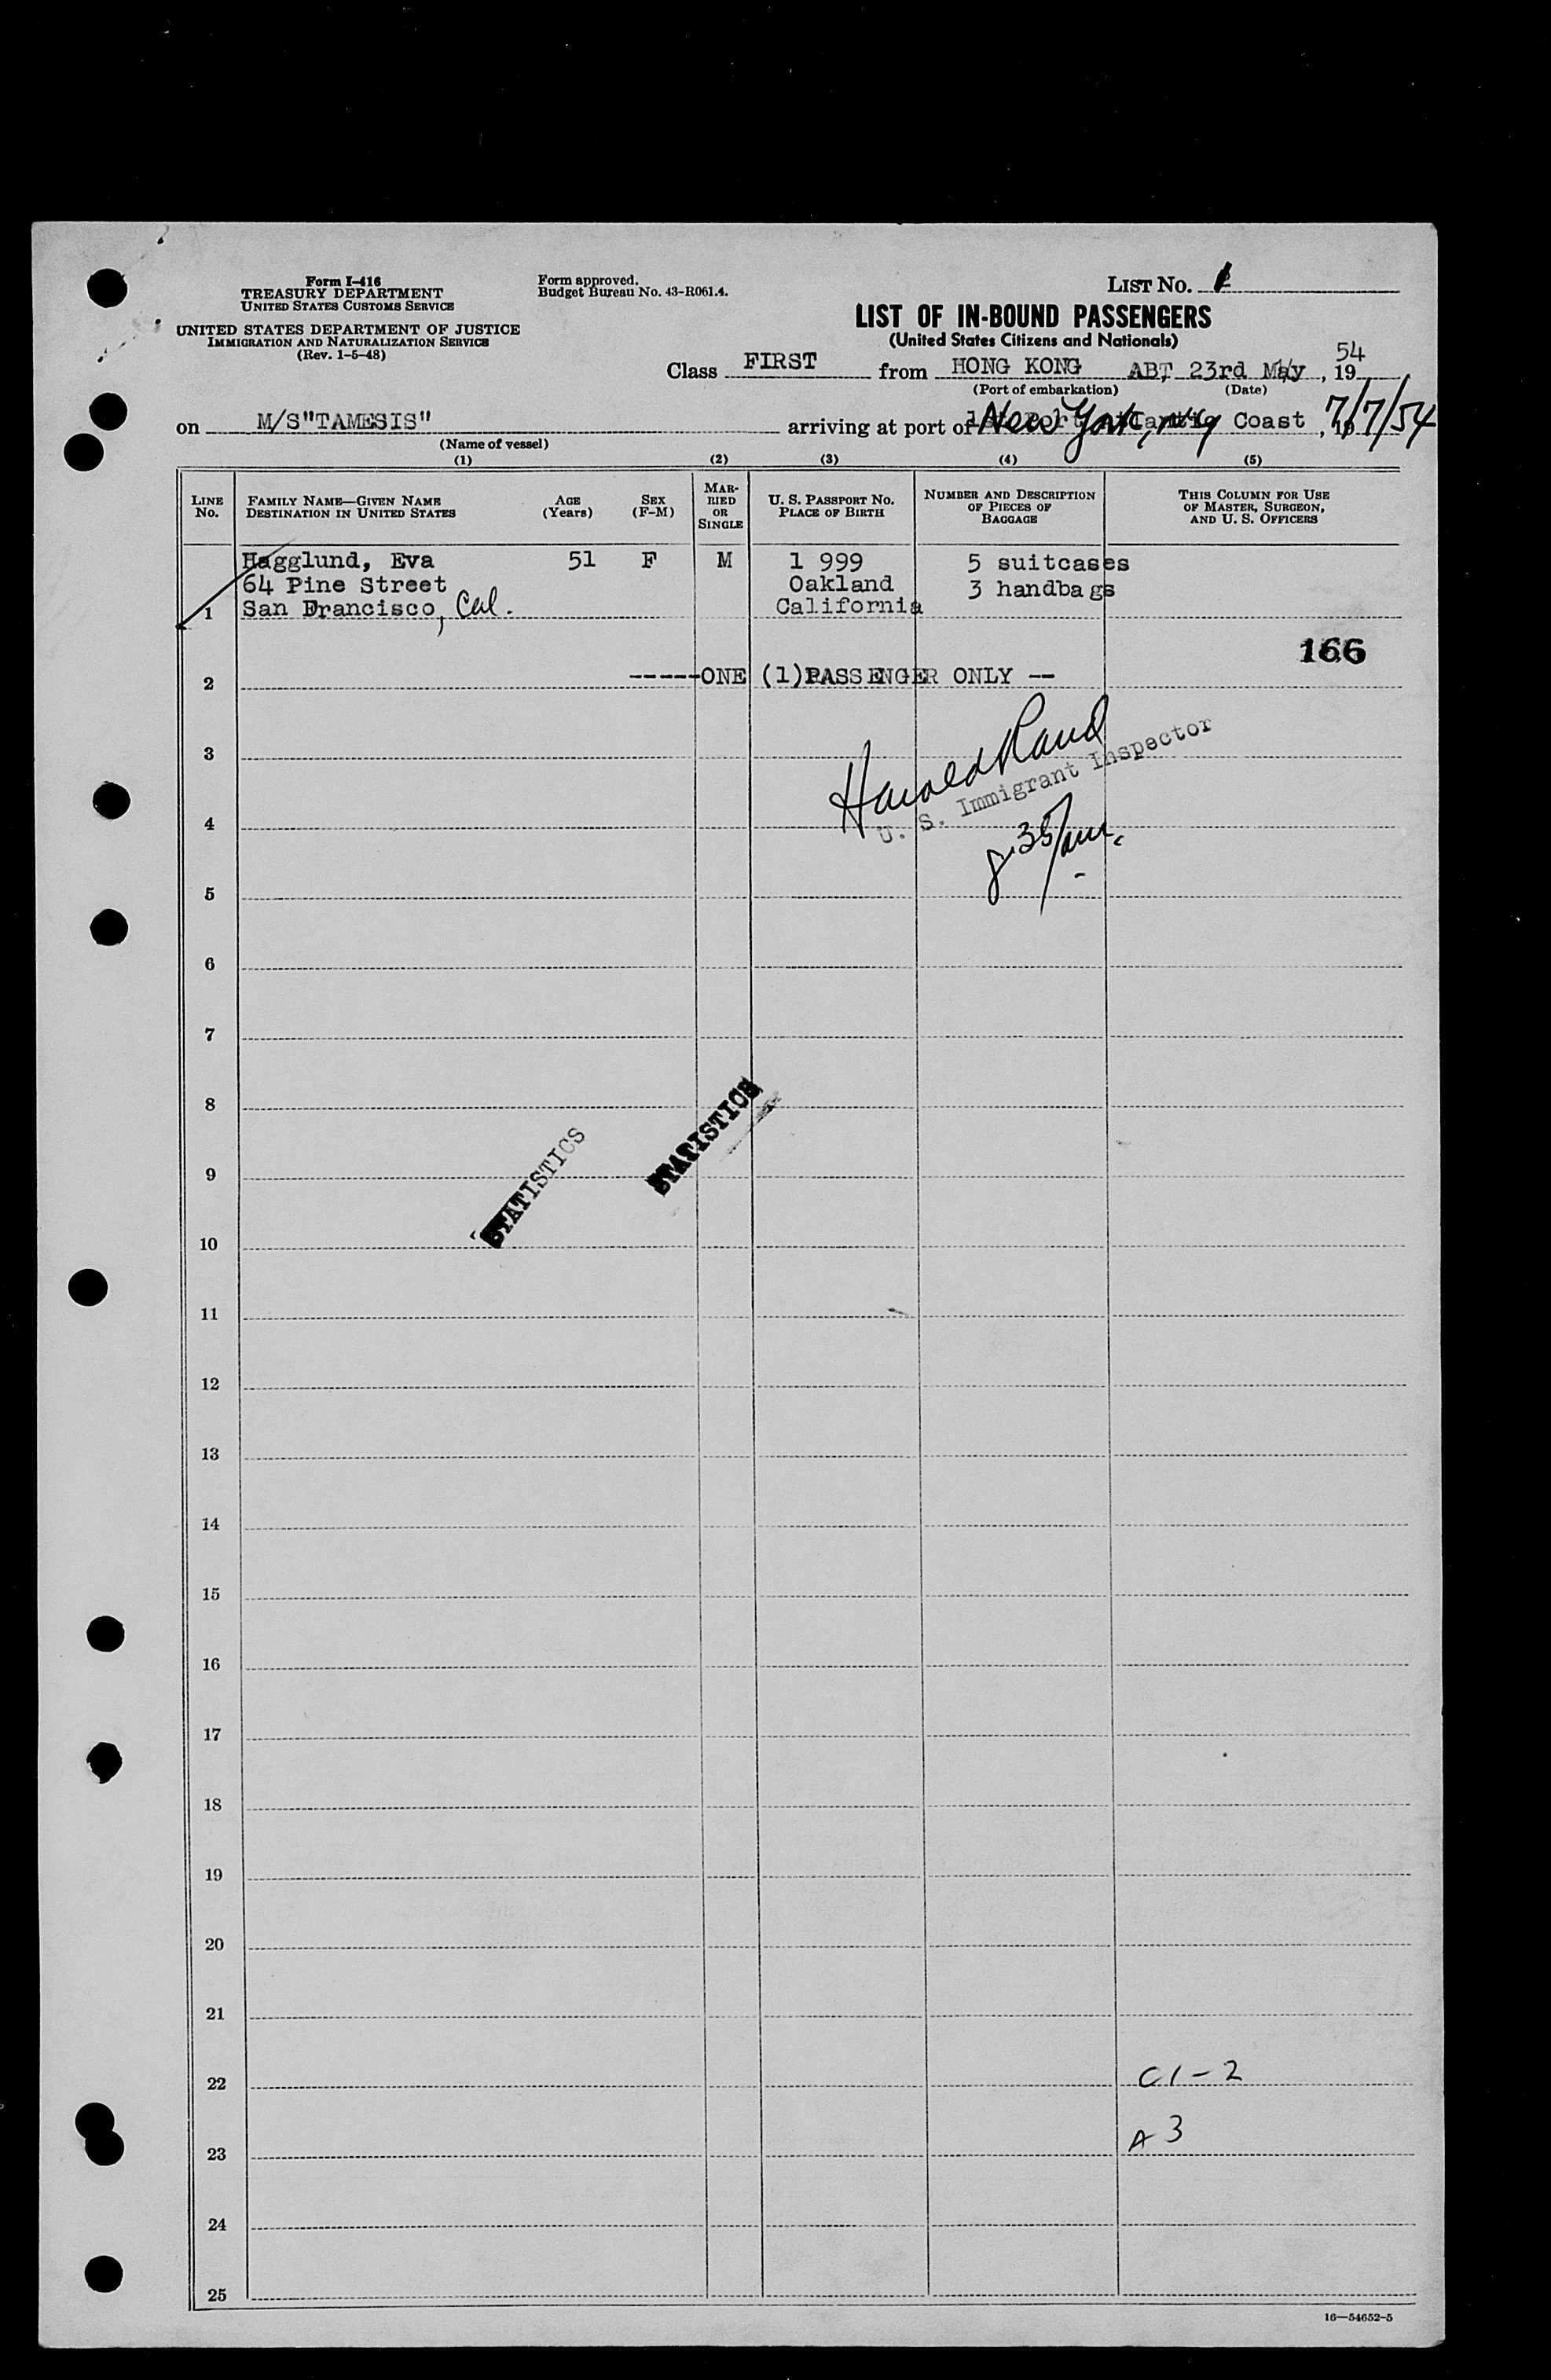 Form I-416
TREASURY DEPARTMENT
UNITED STATES CUSTOMS SERVICE
UNITED STATES DEPARTMENT OF JUSTICE
IMMIGRATION AND NATURALIZATION SERVICE
(Rev. 1-5-48)
Form approved.
Budget Bureau No. 43-R061.4.
LIST NO. 1
LIST OF IN-BOUND PASSENGERS
(United States Citizens and Nationals)
Class FIRST from HONG KONG ABT 23rd May, 19 54
(Port of embarkation) (Date)
on M/S"TAMESIS" arriving at port of New York, NY Coast, 19 7/7/54
(Name of vessel)
(1) (2) (3) (4) (5)
LINE No. FAMILY NAME—GIVEN NAME DESTINATION IN UNITED STATES AGE (Years) SEX (F-M) MARRIED OR SINGLE U. S. PASSPORT NO. PLACE OF BIRTH NUMBER AND DESCRIPTION OF PIECES OF BAGGAGE THIS COLUMN FOR USE OF MASTER, SURGEON, AND U. S. OFFICERS
Hagglund, Eva 51 F M 1 999 5 suitcases
64 Pine Street Oakland 3 handbags
1 San Francisco, Cal. California
166
2 -----ONE (1) PASSENGER ONLY --
3
Harold Rand
U. S. Immigrant Inspector
4
8:35/am.
5
6
7
8
STATISTICS STATISTICS
9
10
11
12
13
14
15
16
17
18
19
20
21
22 C1-2
23 A 3
24
25
16—54652-5